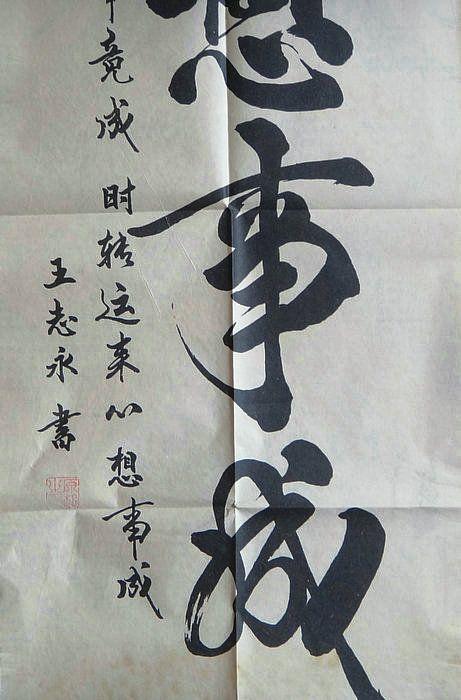 想事成
竟成 时转运来心想事成
王志永书